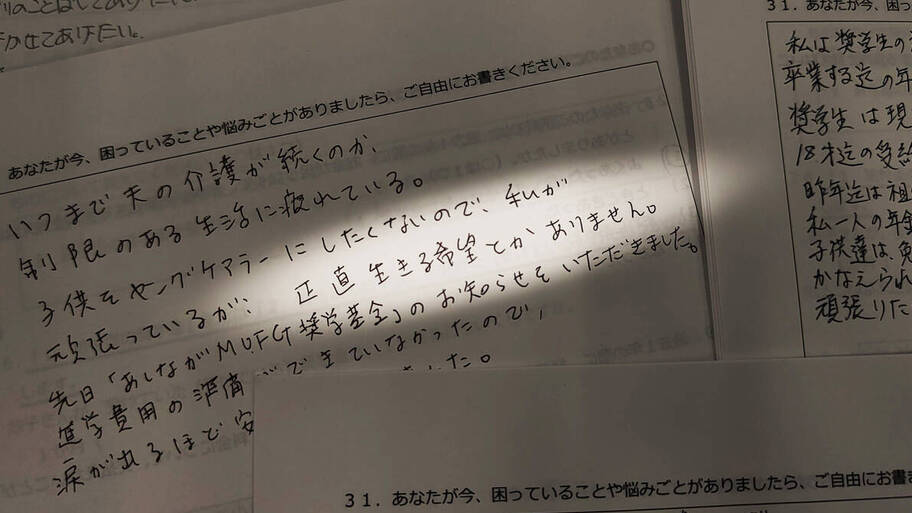 かせてあげたい。
あなたが今、困っていることや悩みごとがありましたら、ご自由にお書きください。
いつまで夫の介護が続くのか、
制限のある生活に疲れている。
子供をヤングケアラーにしたくないので、私が
頑張っているが、正直生きる希望とかありません。
先日「あしながMUFG奨学基金」のお知らせをいただきました。
進学費用の準備ができていなかったので、
涙が出るほど安
した。
31. あなたが今、困って
私は奨学生の
卒業する迄の年
奨学生は現
18才迄の受給
昨年迄は祖
私一人の年金
子供達は、
かなえられ
頑張りた
31. あなたが今、困っていることや悩みごとがありましたら、ご自由にお書き